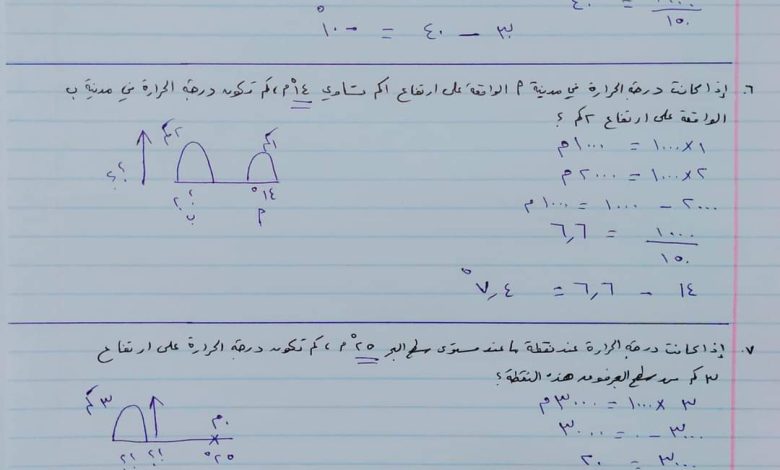 ١٠٠٠
١٥٠
= ٤٠
٣٠ − ٤٠ = −١٠°
٦. إذا كانت درجة الحرارة في مدينة م الواقعة على ارتفاع ١كم تساوي ١٤°م، كم تكون درجة الحرارة في مدينة ب
الواقعة على ارتفاع ٢كم ؟
١ × ١٠٠٠ = ١٠٠٠م
٢ × ١٠٠٠ = ٢٠٠٠م
٢٠٠٠ − ١٠٠٠ = ١٠٠٠م
١٠٠٠ = ٦,٦
١٥٠
١٤ − ٦,٦ = ٧,٤°
١كم
٢كم
؟؟
١٤°
؟؟
م
ب
٧. إذا كانت درجة الحرارة عند نقطة ما عند مستوى سطح البحر ٢٥°م، كم تكون درجة الحرارة على ارتفاع
٣ كم من سطح البحر فوق هذه النقطة ؟
٣ × ١٠٠٠ = ٣٠٠٠م
٣٠٠٠ − ٠ = ٣٠٠٠
٣٠٠٠ = ٢٠
٣كم
٠م
٢٥°
؟؟
؟؟